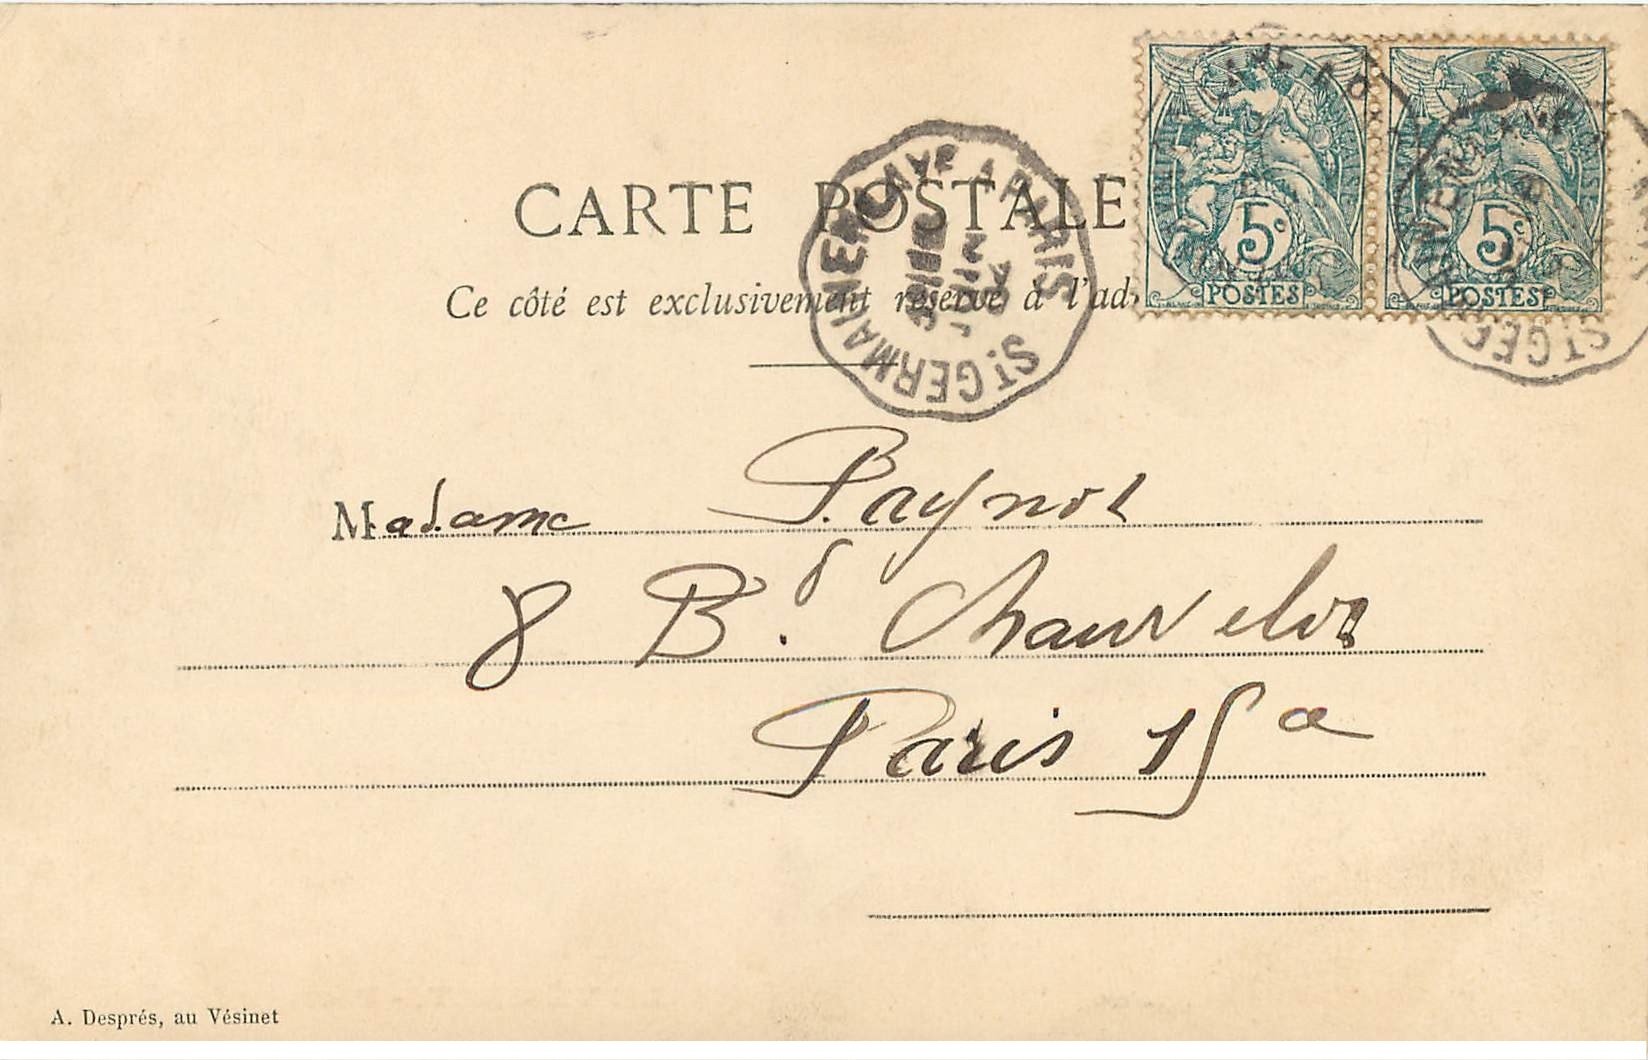 CARTE POSTALE
Ce côté est exclusivement réservé à l'ad
5c 5c
POSTES POSTES
ST GERMAIN EN LAYE A PARIS
04
Madame Paynot
8 Bd. Chauvelot
Paris 15e
A. Després, au Vésinet